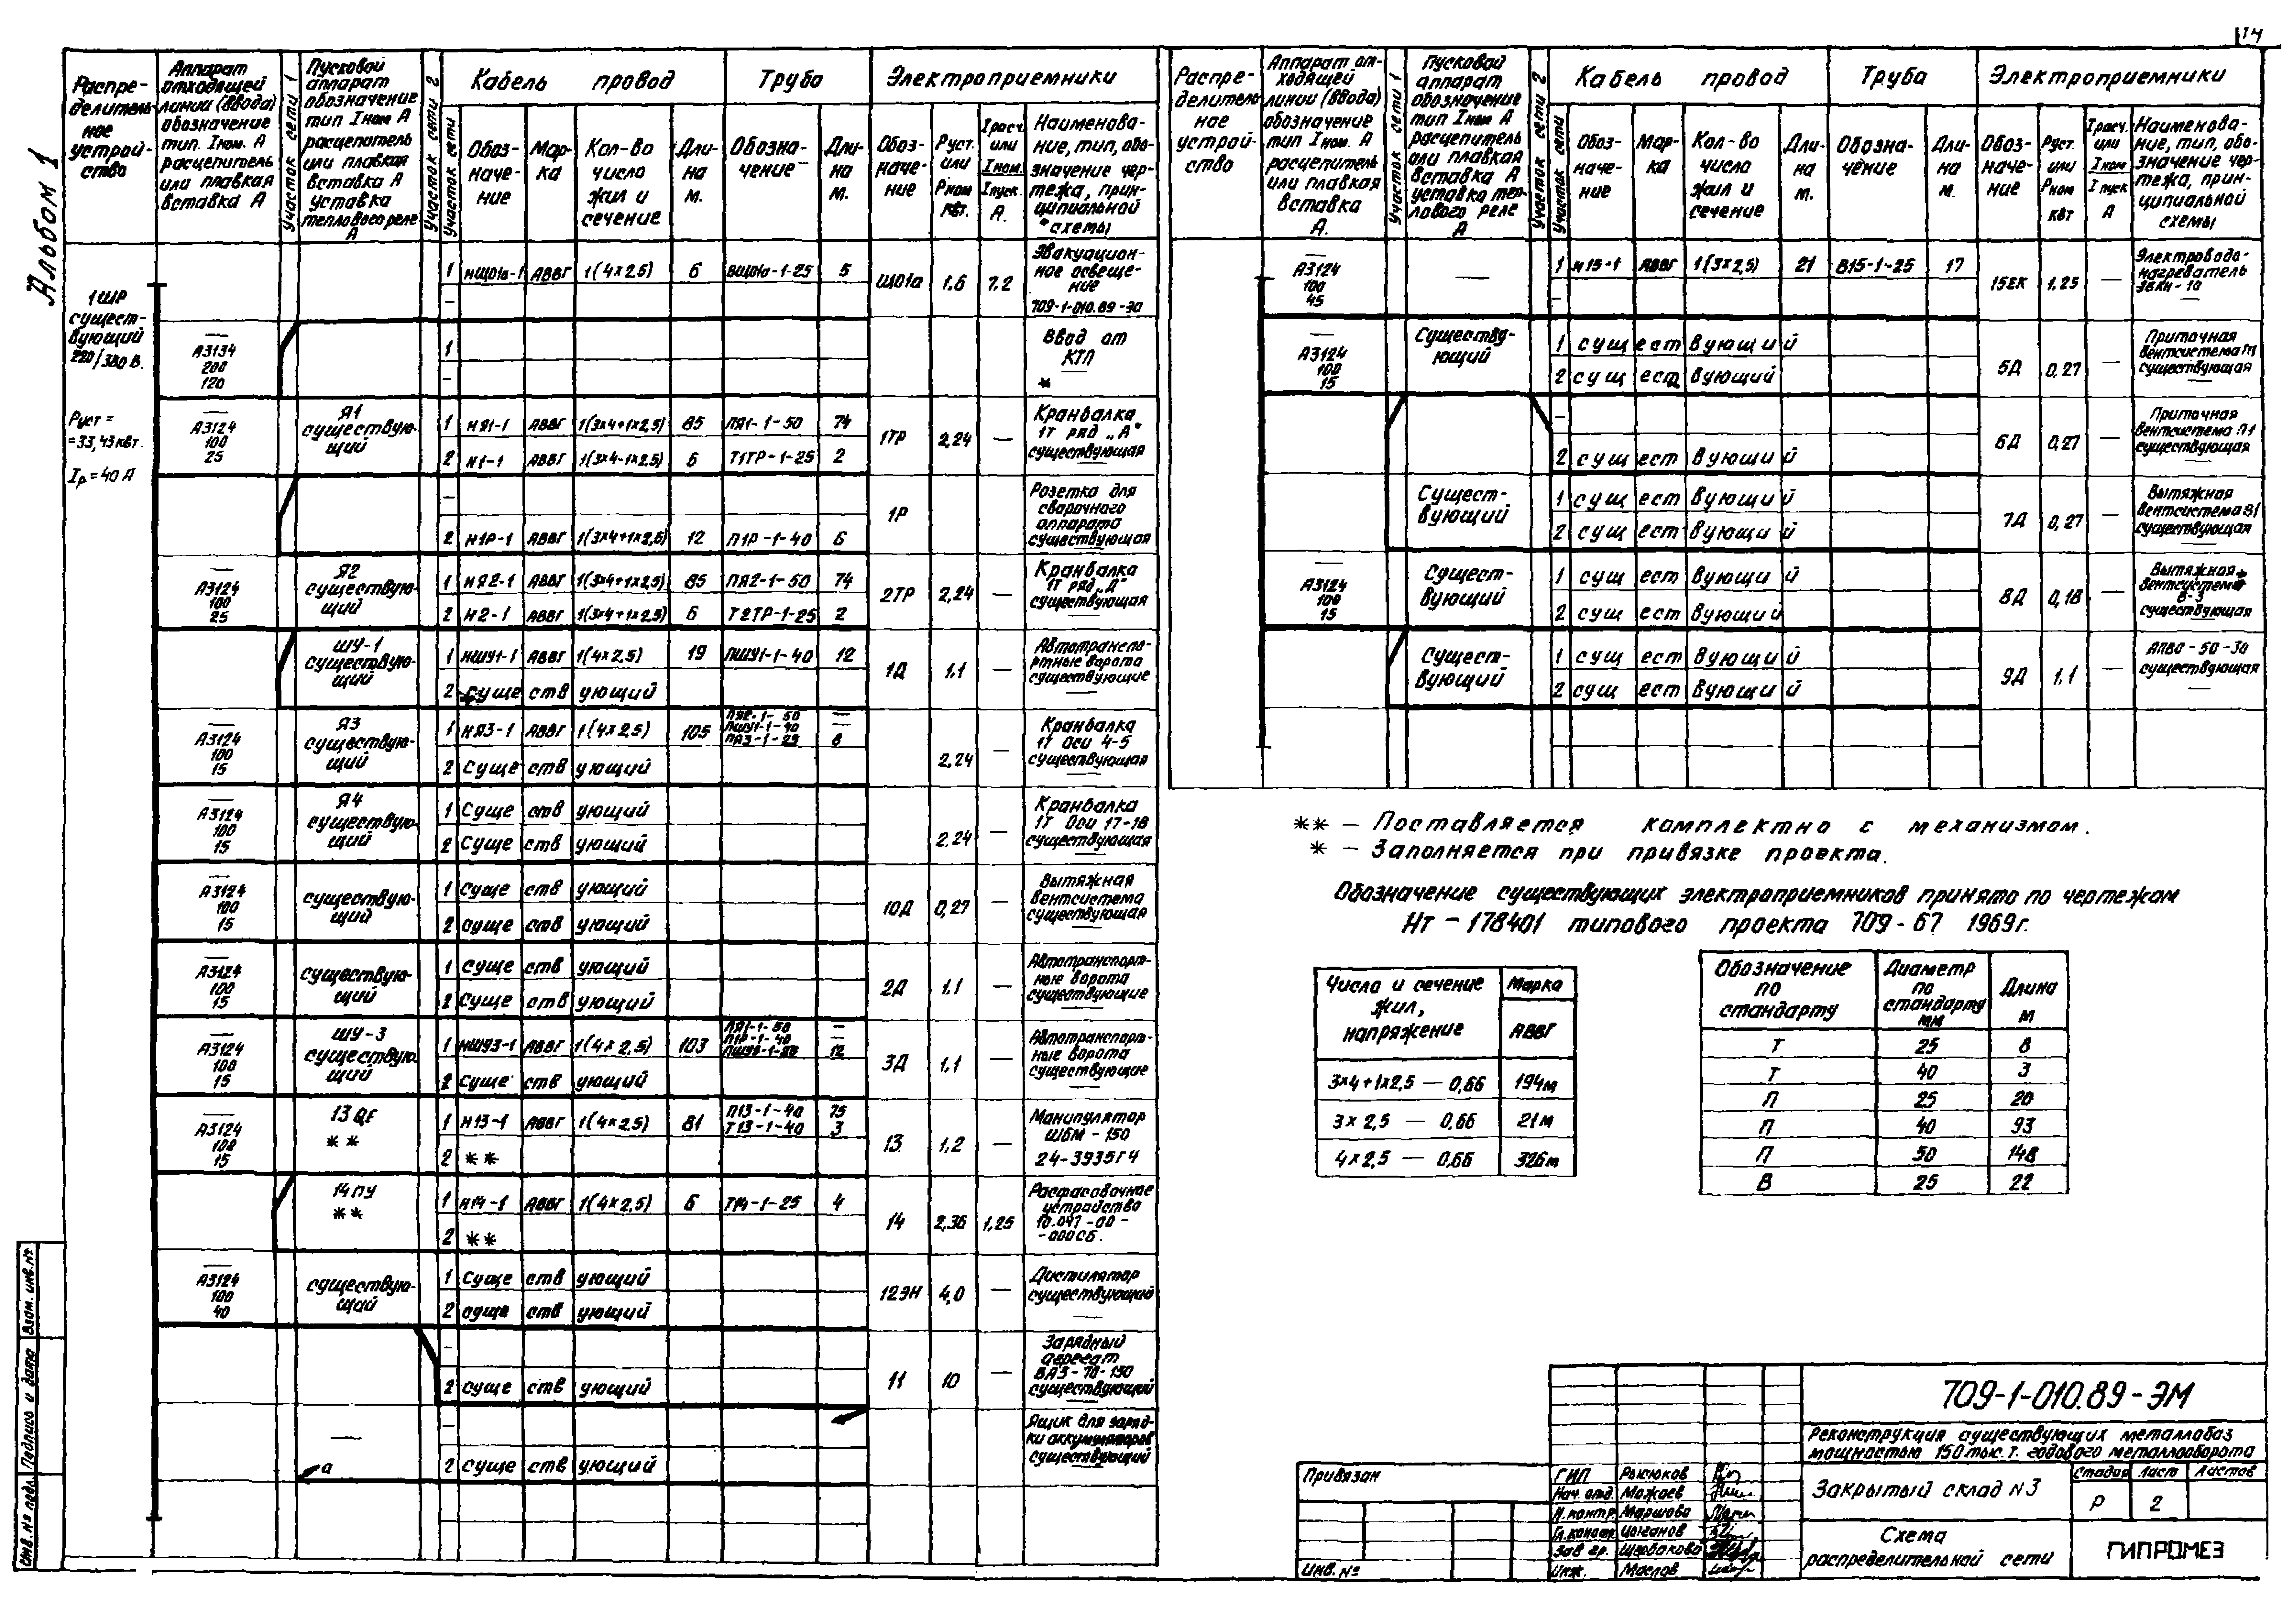 14
Альбом 1
Распре-
делитель-
ное
устрой-
ство
Аппарат
отходящей
линии (ввода)
обозначение
тип. Iном. А
расцепитель
или плавкая
вставка А
Участок сети 1
Пусковой
аппарат
обозначение
тип Iном А
расцепитель
или плавкая
вставка А
уставка
теплового реле
А
Участок сети 2
Участок сети
Кабель провод
Обоз-
наче-
ние
Мар-
ка
Кол-во
число
жил и
сечение
Дли-
на
м.
Труба
Обозна-
чение
Дли-
на
м.
Электроприемники
Обоз-
наче-
ние
Руст.
или
Рном
квт.
Iрасч.
или
Iном.
Iпуск.
А.
Наименова-
ние, тип, обо-
значение чер-
тежа, прин-
ципиальной
схемы
1ШР
сущест-
вующий
220/380 В.
Руст =
=33,43квт.
Iр=40 А
1 НЩ01а-1 АВВГ 1(4×2.5) 6 ВЩ01а-1-25 5 Щ01а 1.6 7.2
Эвакуацион-
ное освеще-
ние
709-1-010.89-ЭО
А3134
200
120
1
Ввод от
КТП
*
А3124
100
25
Я1
существую-
щий
1 НЯ1-1 АВВГ 1(3×4+1×2,5) 85 ПЯ1-1-50 74
2 Н1-1 АВВГ 1(3×4-1×2.5) 6 Т1ТР-1-25 2
1ТР 2,24 —
Кранбалка
1т ряд „А"
существующая
2 Н1Р-1 АВВГ 1(3×4+1×2,5) 12 П1Р-1-40 6
1Р
Розетка для
сварочного
аппарата
существующая
А3124
100
25
Я2
существую-
щий
1 НЯ2-1 АВВГ 1(3×4+1×2,5) 85 ПЯ2-1-50 74
2 Н2-1 АВВГ 1(3×4+1×2,5) 6 Т2ТР-1-25 2
2ТР 2,24 —
Кранбалка
1т ряд „Д"
существующая
ШУ-1
существую-
щий
1 НШУ1-1 АВВГ 1(4×2,5) 19 ПШУ1-1-40 12
2 Существующий
1Д 1.1 —
Автотранспо-
ртные ворота
существующие
А3124
100
15
Я3
существую-
щий
1 НЯ3-1 АВВГ 1(4×2.5) 105
ПЯ2-1-50 —
ПШУ1-1-40 —
ПЯ3-1-25 8
2 Существующий
2,24 —
Кранбалка
1т Оси 4-5
существующая
А3124
100
15
Я4
существую-
щий
1 Существующий
2 Существующий
2,24 —
Кранбалка
1т Оси 17-18
существующая
А3124
100
15
существую-
щий
1 Существующий
2 существующий
10Д 0,27 —
Вытяжная
вентсистема
существующая
А3124
100
15
существую-
щий
1 Существующий
2 Существующий
2Д 1.1 —
Автотранспорт-
ные ворота
существующие
А3124
100
15
ШУ-3
существую-
щий
1 НШУ3-1 АВВГ 1(4×2,5) 103
ПЯ1-1-50 —
П1Р-1-40 —
12
2 Существующий
3Д 1.1 —
Автотранспорт-
ные ворота
существующие
А3124
100
15
13QF
**
1 Н13-1 АВВГ 1(4×2,5) 81
П13-1-40 75
Т13-1-40 3
2 **
13 1,2 —
Манипулятор
ШБМ-150
24-3935ГЧ
14ПУ
**
1 Н14-1 АВВГ 1(4×2,5) 6 Т14-1-25 4
2 **
14 2,36 1,25
Расфасовочное
устройство
10.047-00-
-000СБ.
А3124
100
40
существую-
щий
1 Существующий
2 существующий
12ЭН 4,0 —
Дистилятор
существующий
2 существующий
11 10 —
Зарядный
агрегат
ВАЗ-70-150
существующий
—
а
2 существующий
Ящик для заряд-
ки аккумуляторов
существующий
Распре-
делитель-
ное
устрой-
ство
Аппарат от-
ходящей
линии (ввода)
обозначение
тип Iном. А
расцепитель
или плавкая
вставка
А.
Участок сети 1
Пусковой
аппарат
обозначение
тип Iном А
расцепитель
или плавкая
вставка А
уставка теп-
лового реле
А
Участок сети 2
Участок сети
Кабель провод
Обоз-
наче-
ние
Мар-
ка
Кол-во
число
жил и
сечение
Дли-
на
м.
Труба
Обозна-
чение
Дли-
на
м.
Электроприемники
Обоз-
наче-
ние
Руст.
или
Рном
квт
Iрасч.
или
Iном
Iпуск
А
Наименова-
ние, тип, обо-
значение чер-
тежа, прин-
ципиальной
схемы
А3124
100
45
—
1 Н15-1 АВВГ 1(3×2,5) 21 В15-1-25 17
15ЕК 1.25 —
Электроводо-
нагреватель
А3124
100
15
Существу-
ющий
1 существующий
2 существующий
5Д 0,27 —
Приточная
вентсистема П1
существующая
2 существующий
6Д 0,27 —
Приточная
вентсистема П1
существующая
Сущест-
вующий
1 существующий
2 существующий
7Д 0,27 —
Вытяжная
вентсистема В1
существующая
А3124
100
15
Сущест-
вующий
1 существующий
2 существующий
8Д 0,18 —
Вытяжная
вентсистема
В-3
существующая
Сущест-
вующий
1 существующий
2 существующий
9Д 1,1 —
АПВС-50-30
существующая
** — Поставляется комплектно с механизмом.
* — Заполняется при привязке проекта.
Обозначение существующих электроприемников принято по чертежам
Нт-178401 типового проекта 709-67 1969г.
Число и сечение
жил,
напряжение
Марка
АВВГ
3×4+1×2,5 — 0,66 194м
3×2,5 — 0,66 21м
4×2,5 — 0,66 326м
Обозначение
по
стандарту
Диаметр
по
стандарту
мм
Длина
м
Т 25 8
Т 40 3
П 25 20
П 40 93
П 50 148
В 25 22
709-1-010.89-ЭМ
Реконструкция существующих металлобаз
мощностью 150 тыс. т. годового металлооборота
Закрытый склад №3
Стадия Лист Листов
Р 2
Схема
распределительной сети
ГИПРОМЕЗ
Привязан
Инв. №
ГИП Рысюков
Нач. отд. Можаев
Н. контр. Маршова
Гл. констр. Цыганов
Зав гр. Щербакова
Инж. Маслов
Инв. № подл. Подпись и дата Взам. инв. №